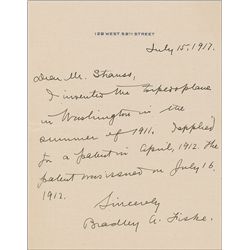 WEST STREET
July 15, 1917.
Dear Mr. Strauss,
I invented the torpedoplane
in Washington in the
summer of 1911. I applied
for a patent in April, 1912. The
patent was issued on July 16.
1912.
Sincerely
Bradley A. Fiske.